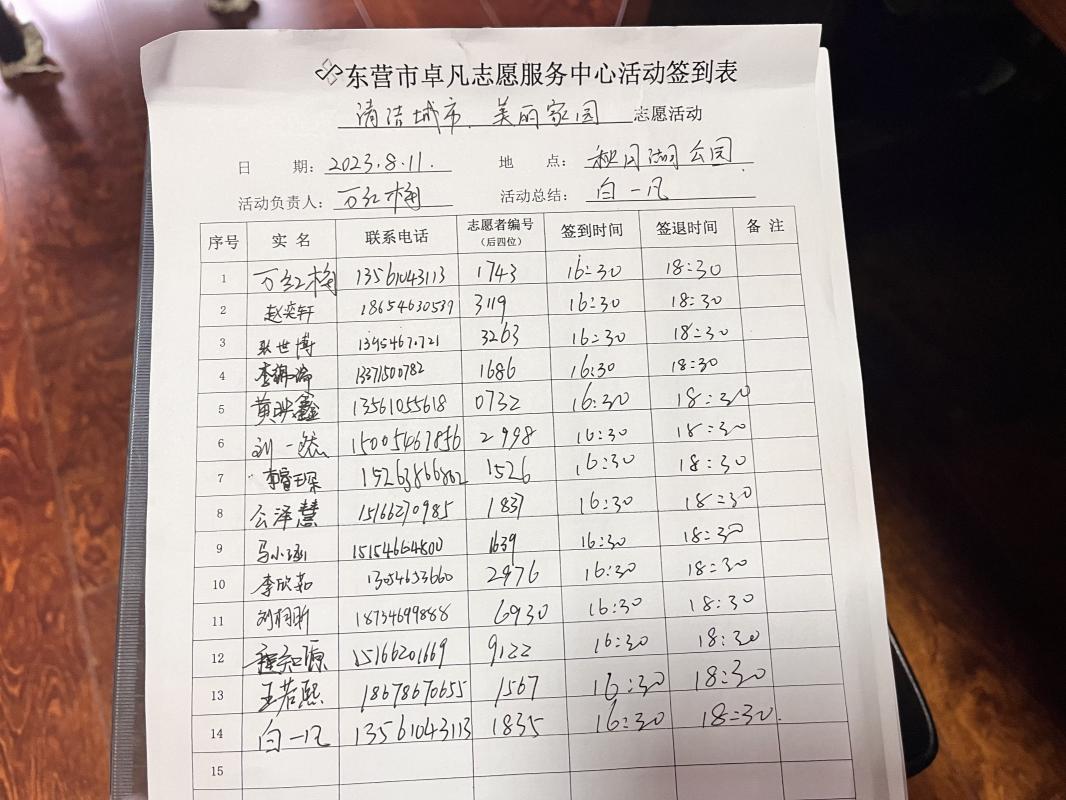 东营市卓凡志愿服务中心活动签到表
清洁城市、美丽家园 志愿活动
日 期: 2023.8.11. 地 点: 秋月湖公园
活动负责人: 万红梅 活动总结: 白一凡
序号 实 名 联系电话 志愿者编号 (后四位) 签到时间 签退时间 备 注
1 万红梅 13561043113 1743 16:30 18:30
2 赵奕轩 18654630539 3119 16:30 18:30
3 张世博 3263 16:30 18:30
4 1686 16:30 18:30
5 黄映鑫 13561055618 0732 16:30 18:30
6 刘一然 15005467856 2998 16:30 18:30
7 李睿琛 15263866862 1526 16:30 18:30
8 公泽慧 15166270985 1837 16:30 18:30
9 马小涵 15154664800 1639 16:30 18:30
10 李欣茹 13054653660 2976 16:30 18:30
11 刘栩昕 18734699888 6930 16:30 18:30
12 程知源 15166201669 9122 16:30 18:30
13 王若熙 18678670655 1567 16:30 18:30
14 白一凡 13561043113 1835 16:30 18:30.
15